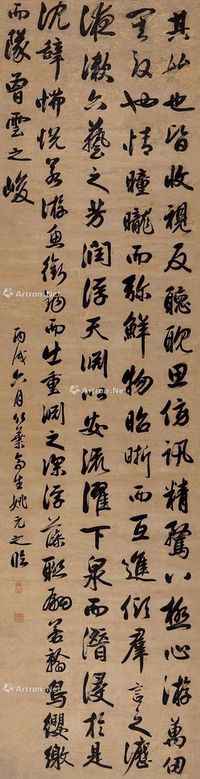 其始也皆收視反聽耽思傍訊精騖八極心游萬仞
其致也情曈曨而弥鮮物昭晰而互進傾群言之瀝
液漱六藝之芳潤浮天淵安流濯下泉而潛浸於是
沈辭怫悅若游魚銜鉤而出重淵之深浮藻聯翩若翰鳥纓繳
而隊曾雲之峻
丙戌六月竹葉亭生姚元之臨
Artron.Net